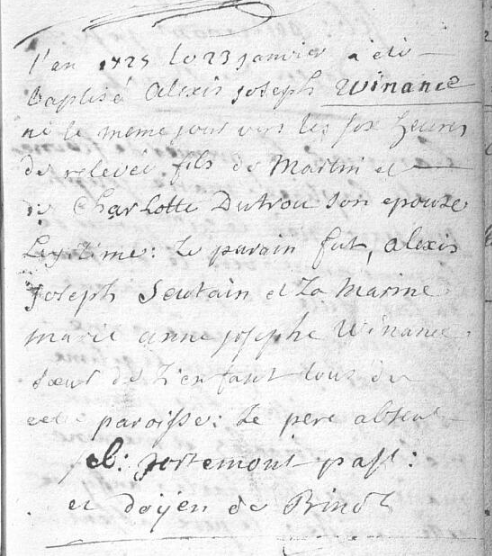 L'en 1725 le 23 janvier a été
baptisé alexis joseph Winance
né le meme jour vers les six heures
de relevée fils de Martin et
de Charlotte Dutrou son epouze
Legitime: Le parain fut, alexis
joseph Seutain et La Marine
marie anne josephe Winance
sœur de L'enfant tous de
cete paroisse: Le pere absent
portemont past:
et doyen de Binch